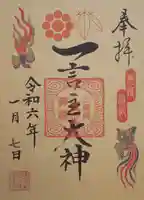 奉拝
一言主大神
令和六年
一月七日